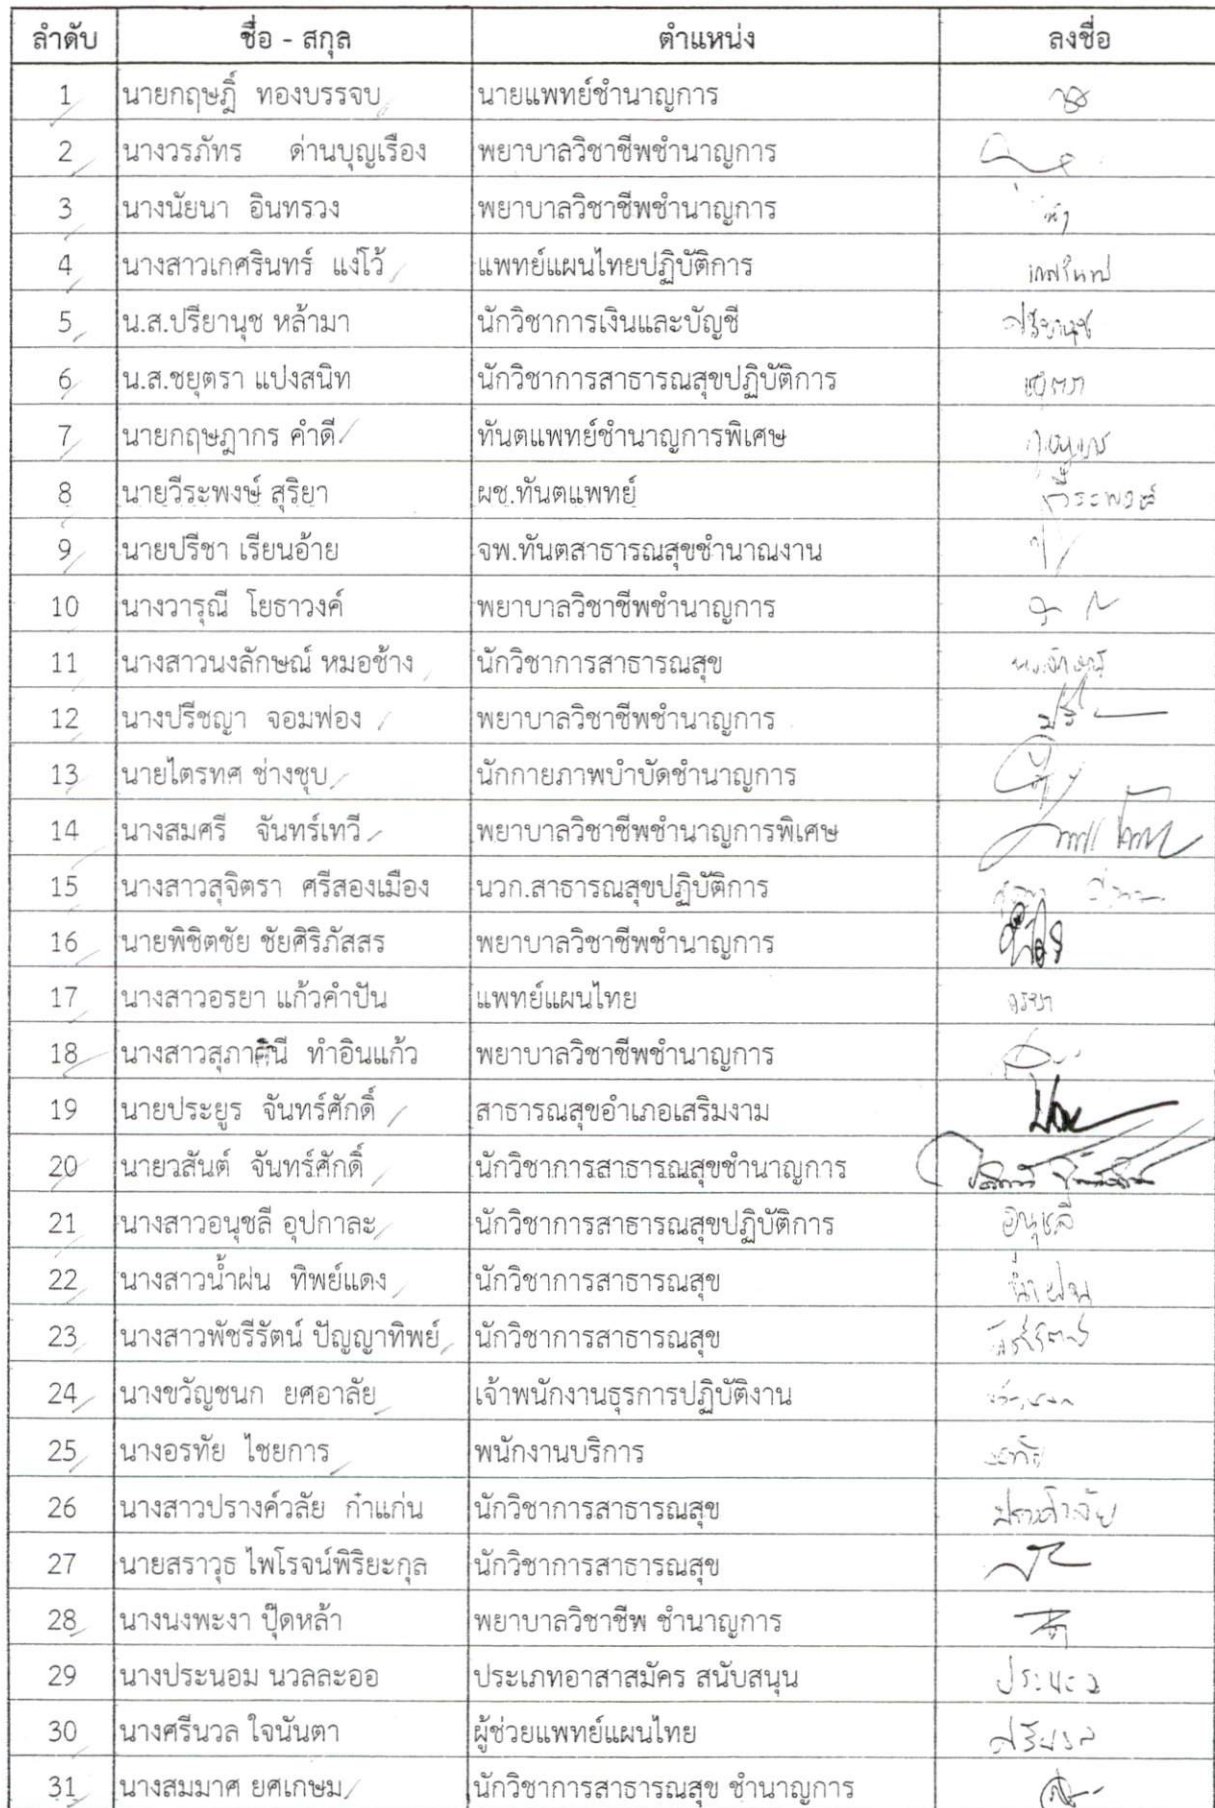 ลำดับ ชื่อ - สกุล ตำแหน่ง ลงชื่อ
1 นายกฤษฎิ์ ทองบรรจบ นายแพทย์ชำนาญการ
2 นางวรภัทร ด่านบุญเรือง พยาบาลวิชาชีพชำนาญการ
3 นางนัยนา อินทรวง พยาบาลวิชาชีพชำนาญการ
4 นางสาวเกศรินทร์ แง่โว้ แพทย์แผนไทยปฏิบัติการ
5 น.ส.ปรียานุช หล้ามา นักวิชาการเงินและบัญชี ปรียานุช
6 น.ส.ชยุตรา แปงสนิท นักวิชาการสาธารณสุขปฏิบัติการ ชยุตรา
7 นายกฤษฎากร คำดี ทันตแพทย์ชำนาญการพิเศษ
8 นายวีระพงษ์ สุริยา ผช.ทันตแพทย์ วีระพงษ์
9 นายปรีชา เรียนอ้าย จพ.ทันตสาธารณสุขชำนาณงาน
10 นางวารุณี โยธาวงค์ พยาบาลวิชาชีพชำนาญการ
11 นางสาวนงลักษณ์ หมอช้าง นักวิชาการสาธารณสุข นงลักษณ์
12 นางปรีชญา จอมฟอง พยาบาลวิชาชีพชำนาญการ
13 นายไตรทศ ช่างชุบ นักกายภาพบำบัดชำนาญการ
14 นางสมศรี จันทร์เทวี พยาบาลวิชาชีพชำนาญการพิเศษ
15 นางสาวสุจิตรา ศรีสองเมือง นวก.สาธารณสุขปฏิบัติการ
16 นายพิชิตชัย ชัยศิริภัสสร พยาบาลวิชาชีพชำนาญการ
17 นางสาวอรยา แก้วคำปัน แพทย์แผนไทย อรยา
18 นางสาวสุภาศินี ทำอินแก้ว พยาบาลวิชาชีพชำนาญการ
19 นายประยูร จันทร์ศักดิ์ สาธารณสุขอำเภอเสริมงาม
20 นายวสันต์ จันทร์ศักดิ์ นักวิชาการสาธารณสุขชำนาญการ
21 นางสาวอนุชลี อุปกาละ นักวิชาการสาธารณสุขปฏิบัติการ อนุชลี
22 นางสาวน้ำฝน ทิพย์แดง นักวิชาการสาธารณสุข น้ำฝน
23 นางสาวพัชรีรัตน์ ปัญญาทิพย์ นักวิชาการสาธารณสุข พัชรีรัตน์
24 นางขวัญชนก ยศอาลัย เจ้าพนักงานธุรการปฏิบัติงาน
25 นางอรทัย ไชยการ พนักงานบริการ อรทัย
26 นางสาวปรางค์วลัย ก๋าแก่น นักวิชาการสาธารณสุข ปรางค์วลัย
27 นายสราวุธ ไพโรจน์พิริยะกุล นักวิชาการสาธารณสุข
28 นางนงพะงา ปุ๊ดหล้า พยาบาลวิชาชีพ ชำนาญการ
29 นางประนอม นวลละออ ประเภทอาสาสมัคร สนับสนุน
30 นางศรีนวล ใจนันตา ผู้ช่วยแพทย์แผนไทย ศรีนวล
31 นางสมมาศ ยศเกษม นักวิชาการสาธารณสุข ชำนาญการ